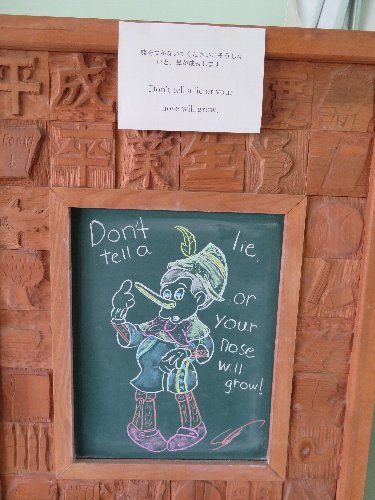 嘘をつかないでください、そうしな
いと、鼻が成長します。
Don't tell a lie or your
nose will grow.
平成
卒業生
Don't
tell a
lie.
or
your
nose
will
grow!